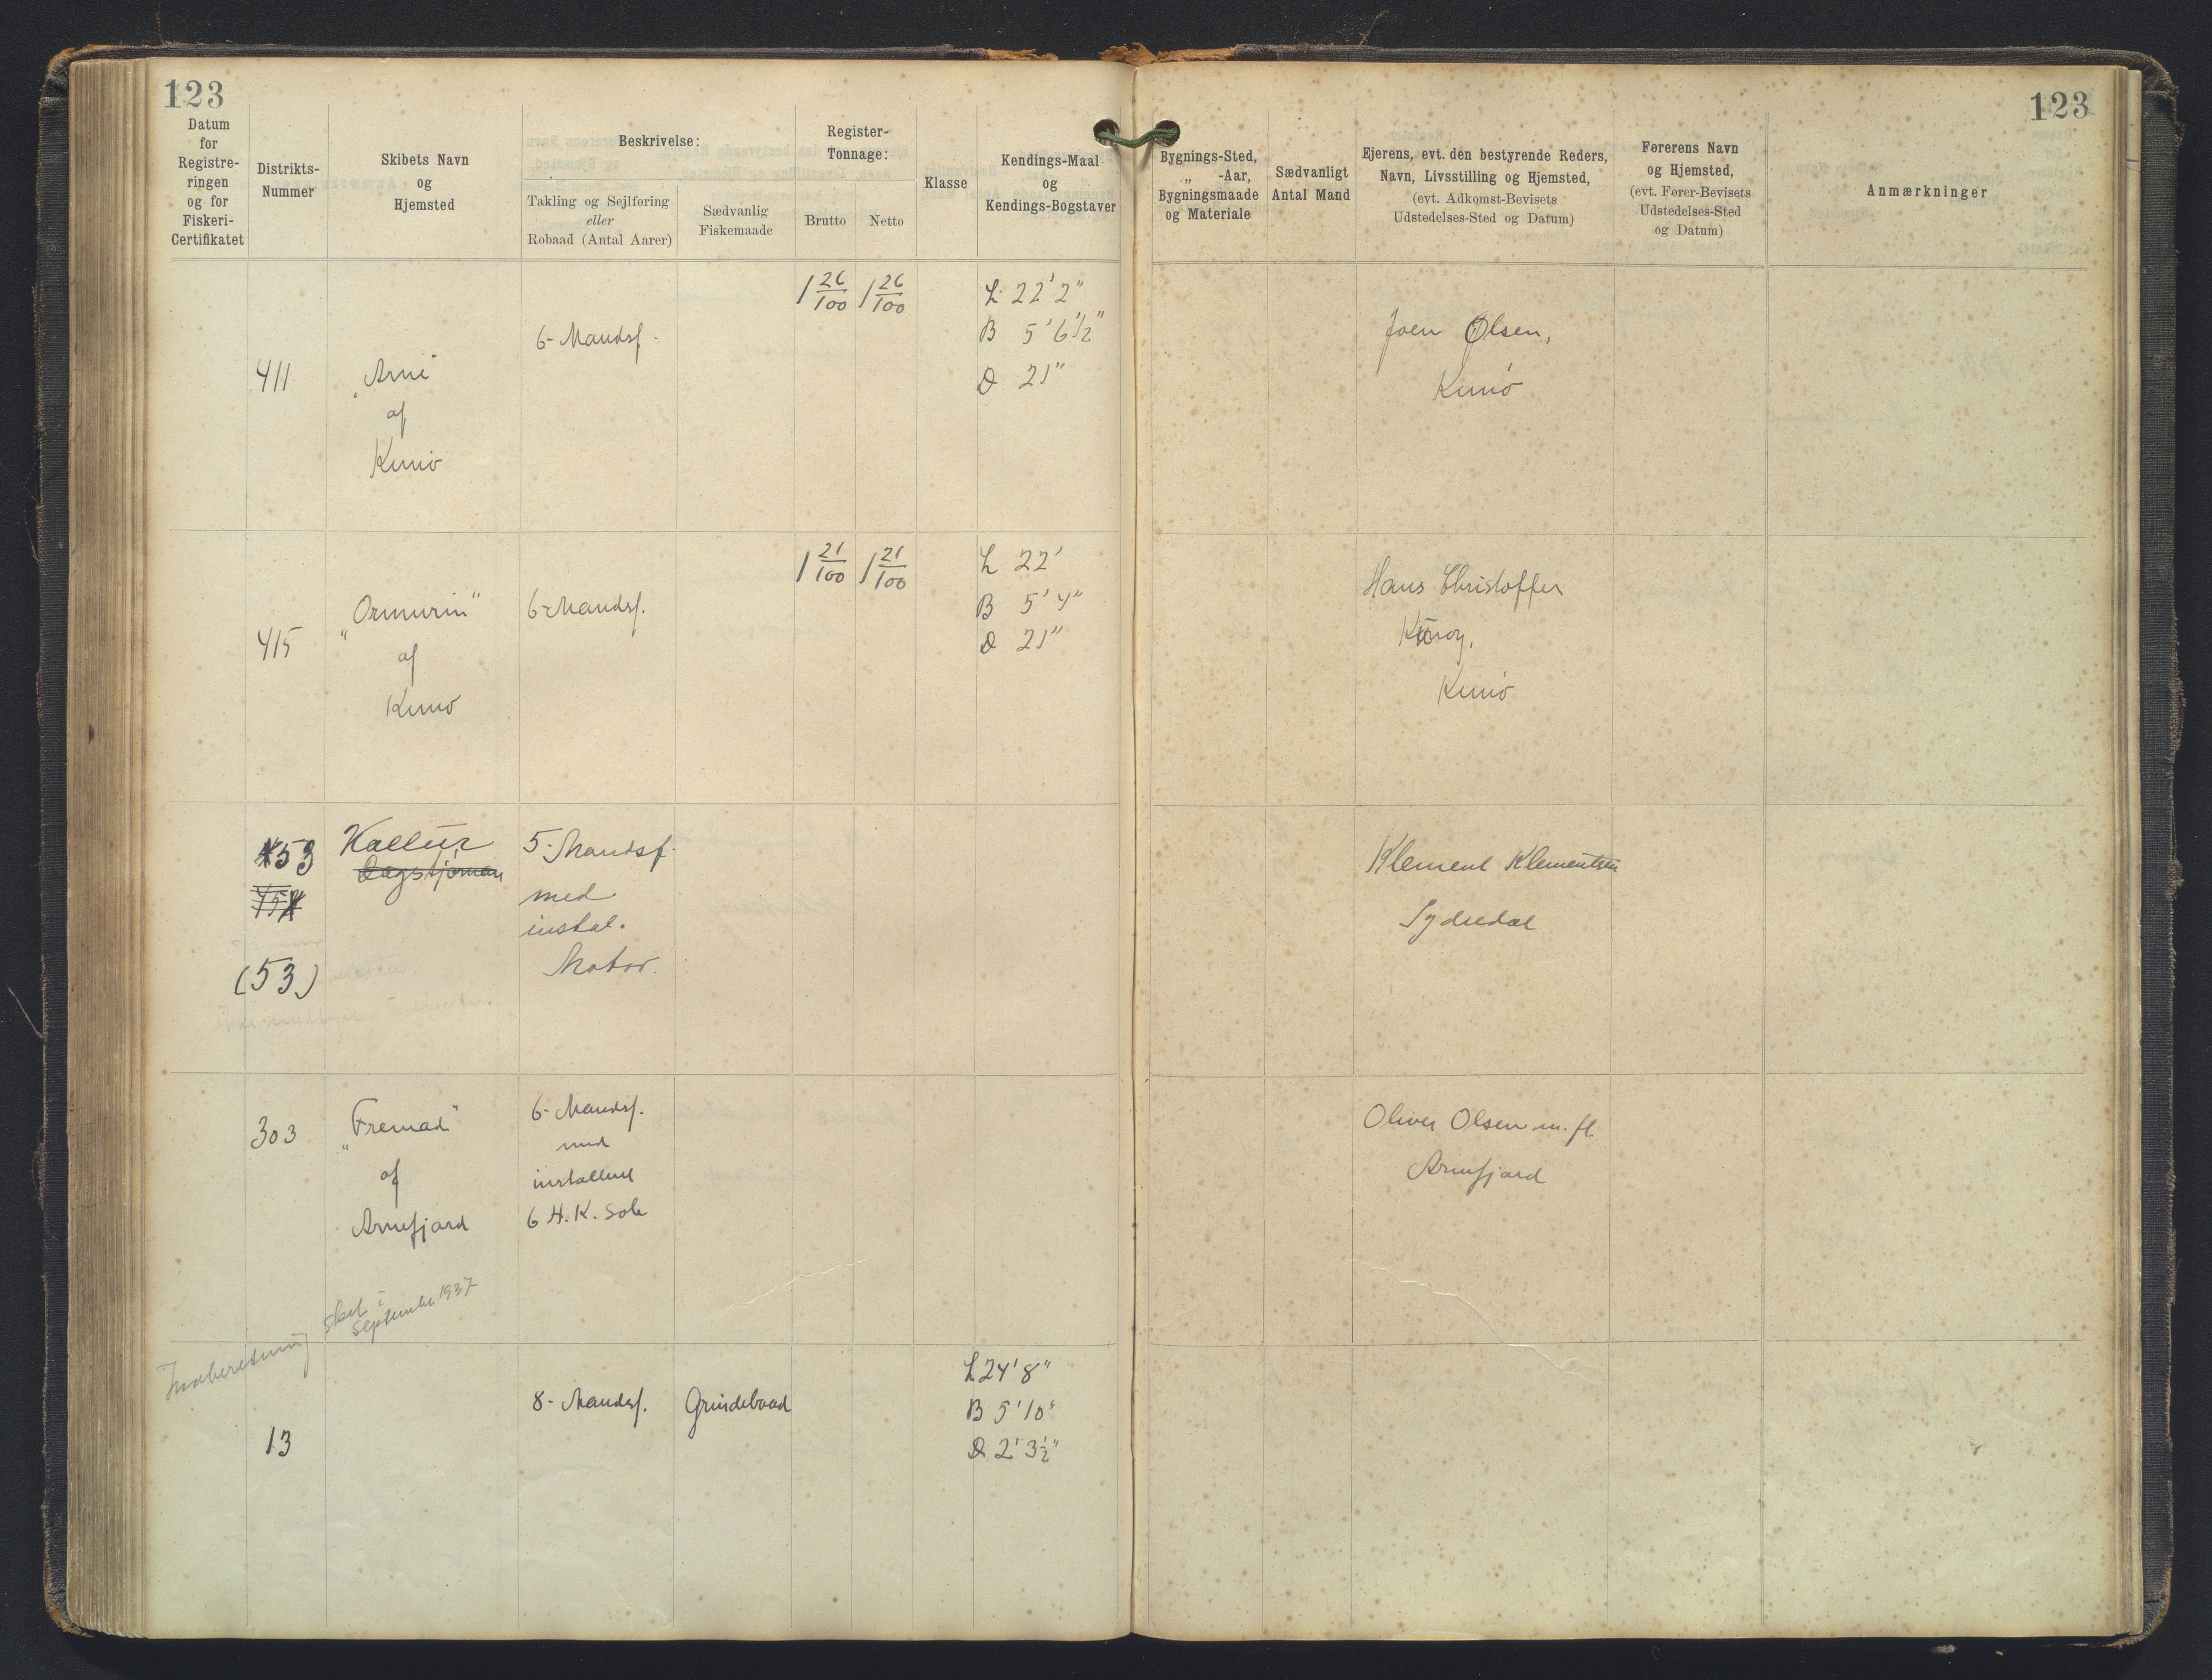 123
123
Datum
for
Registre-
ringen
og for
Fiskeri-
Certifikatet
Distrikts-
Nummer
Skibets Navn
og
Hjemsted
Beskrivelse:
Takling og Sejlføring
eller
Robaad (Antal Aarer)
Sædvanlig
Fiskemaade
Register-
Tonnage:
Brutto
Netto
Klasse
Kendings-Maal
og
Kendings-Bogstaver
Bygnings-Sted,
„ -Aar,
Bygningsmaade
og Materiale
Sædvanligt
Antal Mand
Ejerens, evt. den bestyrende Reders,
Navn, Livsstilling og Hjemsted,
(evt. Adkomst-Bevisets
Udstedelses-Sted og Datum)
Førerens Navn
og Hjemsted,
(evt. Fører-Bevisets
Udstedelses-Sted
og Datum)
Anmærkninger
411
„Arni"
af
Kunø
6-Mandsf.
1 26/100
1 26/100
L 22' 2"
B 5' 6 1/2"
D 21"
Joen Olsen,
Kunø
415
„Ormurin"
af
Kunø
6-Mandsf.
1 21/100
1 21/100
L 22'
B 5' 4"
D 21"
Hans Christoffer
Kūnoy,
Kunø
53
(53)
Kallūr
Dagstjørnan
5-Mandsf.
med
instal.
Motor.
Klement Klementsen
Sydredal
303
„Fremad"
af
Arnefjord
6-Mandsf.
med
installeret
6 H.K. Sole
Oliver Olsen m. fl.
Arnefjord
sket i
September 1937
Indberetning
13
8-Mandsf.
Grindebaad
L 24' 8"
B 5' 10"
D 2' 3 1/2"